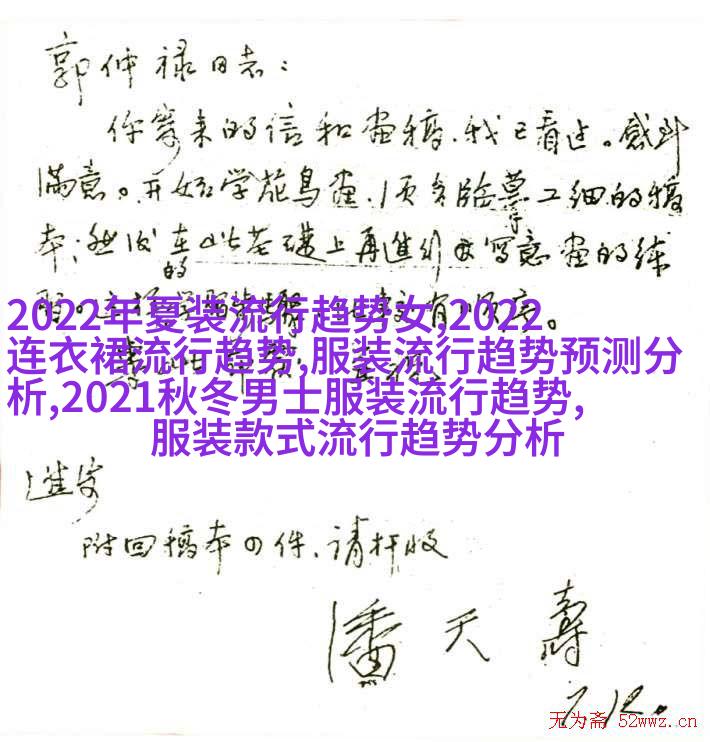 郭仲禄同志：
你寄来的信和画稿，我已看过。感到
满意。开始学花鸟画，须多临摹工细的稿
本；然后在此基础上再进行写意画的练
的
有顺序。
2022年夏装流行趋势女,2022
连衣裙流行趋势,服装流行趋势预测分
析,2021秋冬男士服装流行趋势,
服装款式流行趋势分析
进安
附回稿本四件，请检收
潘天寿
7.12.
无为斋 52wwz.cn